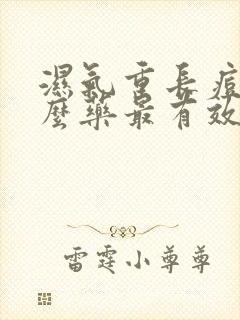 濕氣重長痘
麼藥最有效
雷霆小尊尊